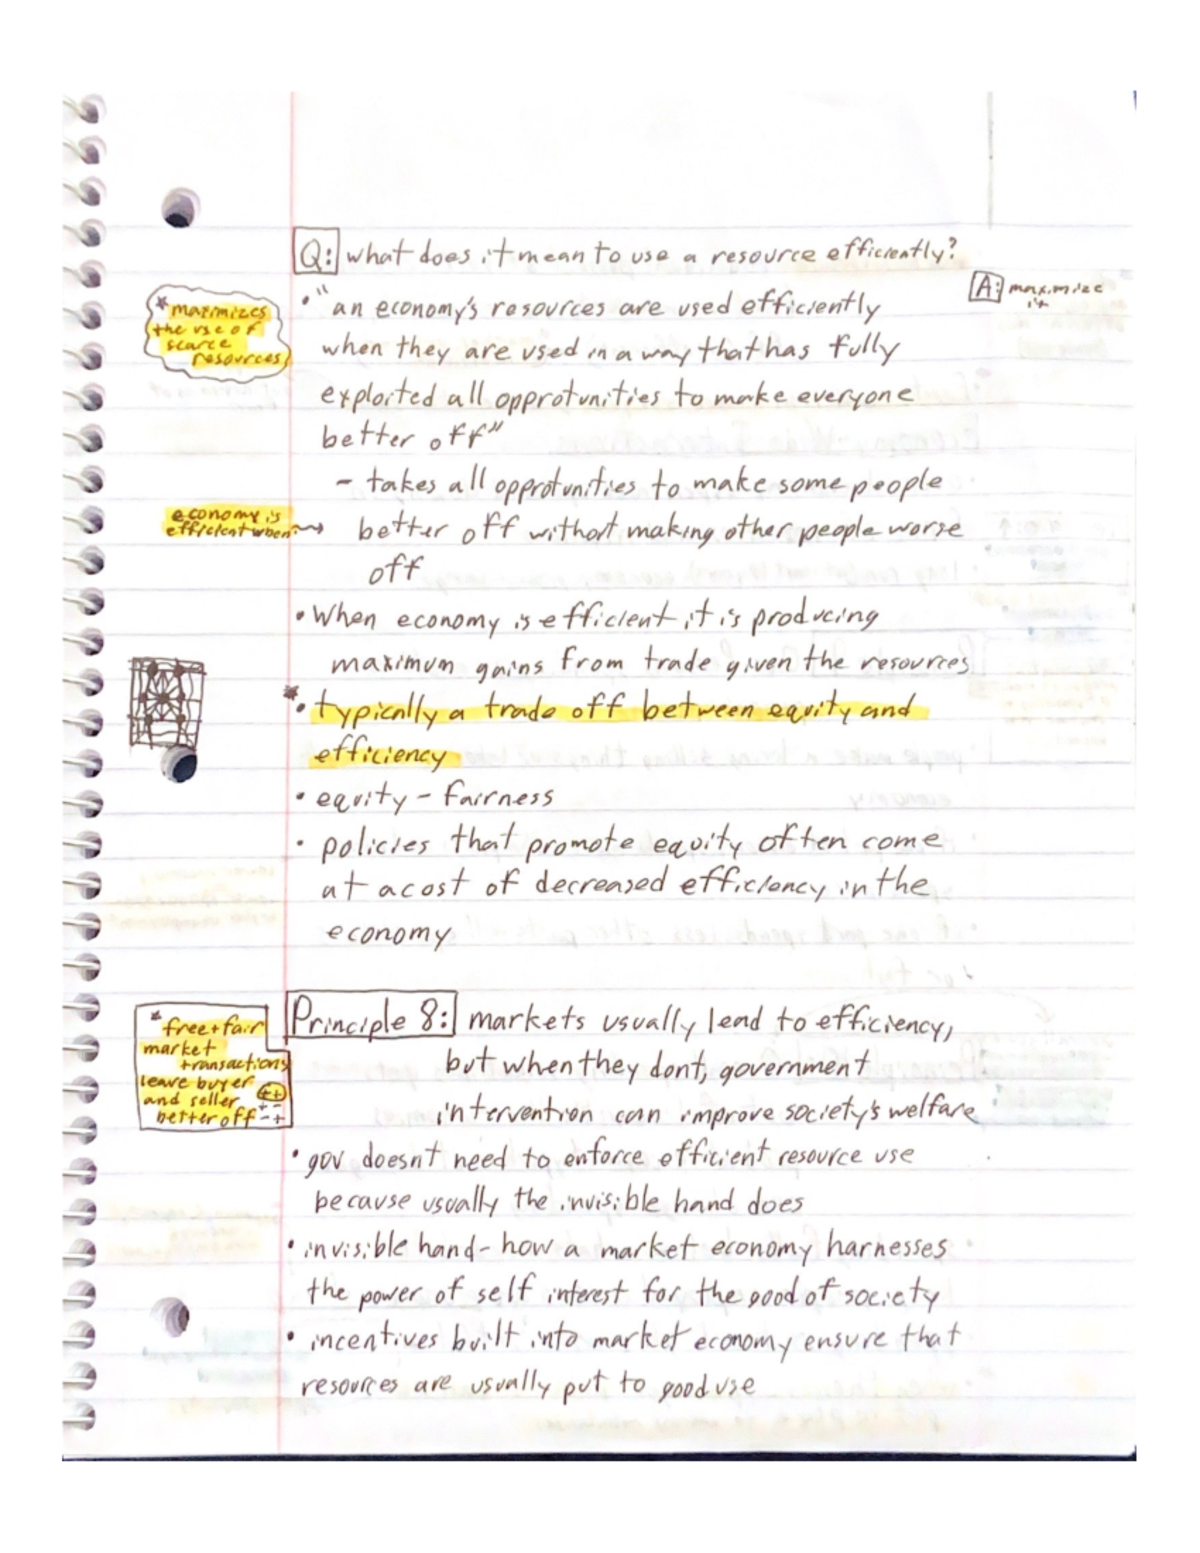 Q: what does it mean to use a resource efficiently?
A: maximize
it
• "an economy's resources are used efficiently
when they are used in a way that has fully
exploited all opprotunities to make everyone
better off"
* maximizes
the use of
scarce
resources
- takes all opprotunities to make some people
better off without making other people worse
off
economy is
efficient when
• When economy is efficient it is producing
maximum gains from trade given the resources
* • typically a trade off between equity and
efficiency
• equity - fairness
• policies that promote equity often come
at a cost of decreased efficiency in the
economy
Principle 8: markets usually lead to efficiency,
but when they dont, government
intervention can improve society's welfare
* free + fair
market
transactions
leave buyer
and seller ++
better off
• gov doesnt need to enforce efficient resource use
because usually the invisible hand does
• invisible hand - how a market economy harnesses
the power of self interest for the good of society
• incentives built into market economy ensure that
resources are usually put to good use